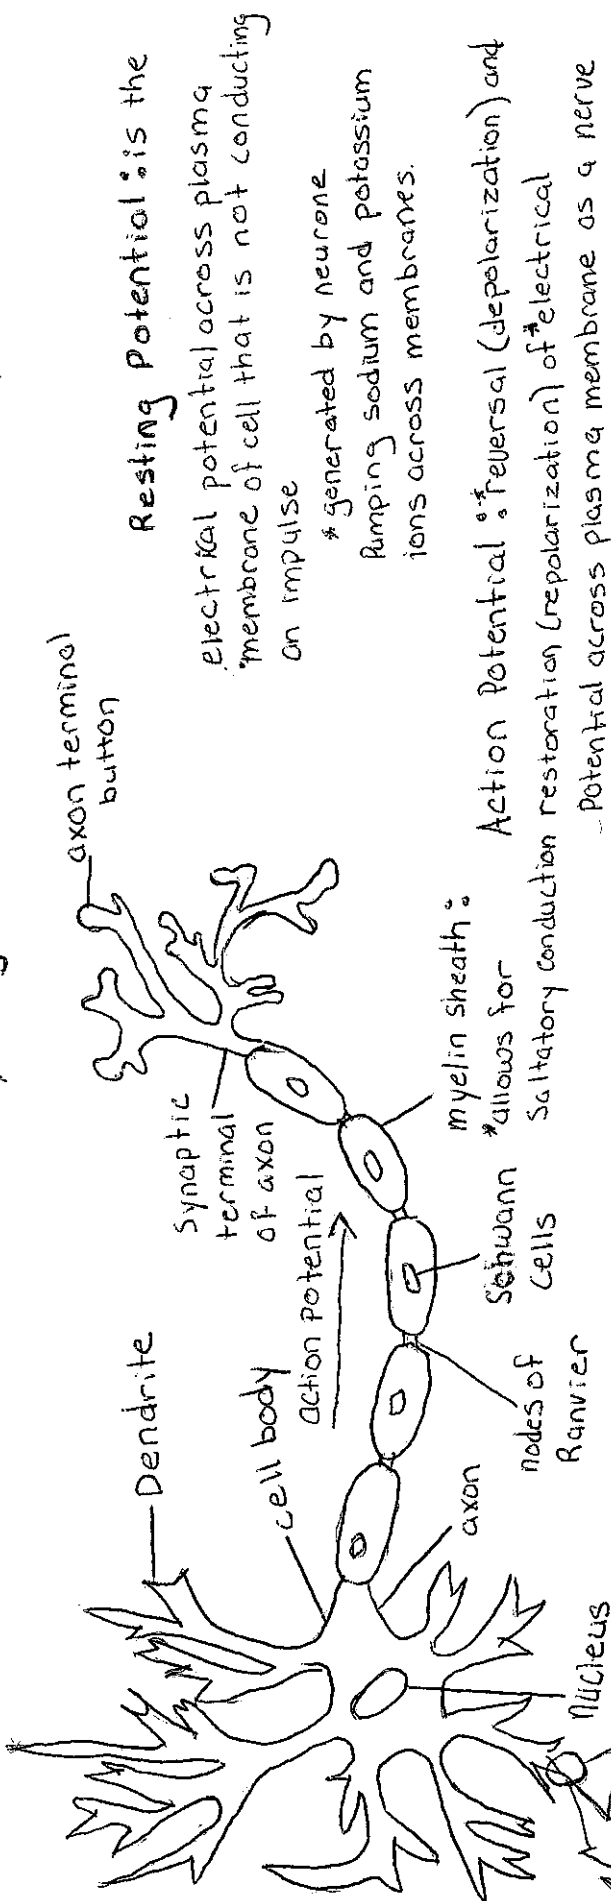 Dendrite
cell body
action potential
Synaptic
terminal
of axon
axon terminal
button
axon
nucleus
nodes of
Ranvier
Schwann
Cells
myelin sheath:
*allows for
Saltatory conduction
Resting Potential: is the
electrical potential across plasma
membrane of cell that is not conducting
an impulse
*generated by neurone
Pumping sodium and potassium
ions across membranes.
Action Potential: *reversal (depolarization) and
restoration (repolarization) of *electrical
Potential across plasma membrane as a nerve